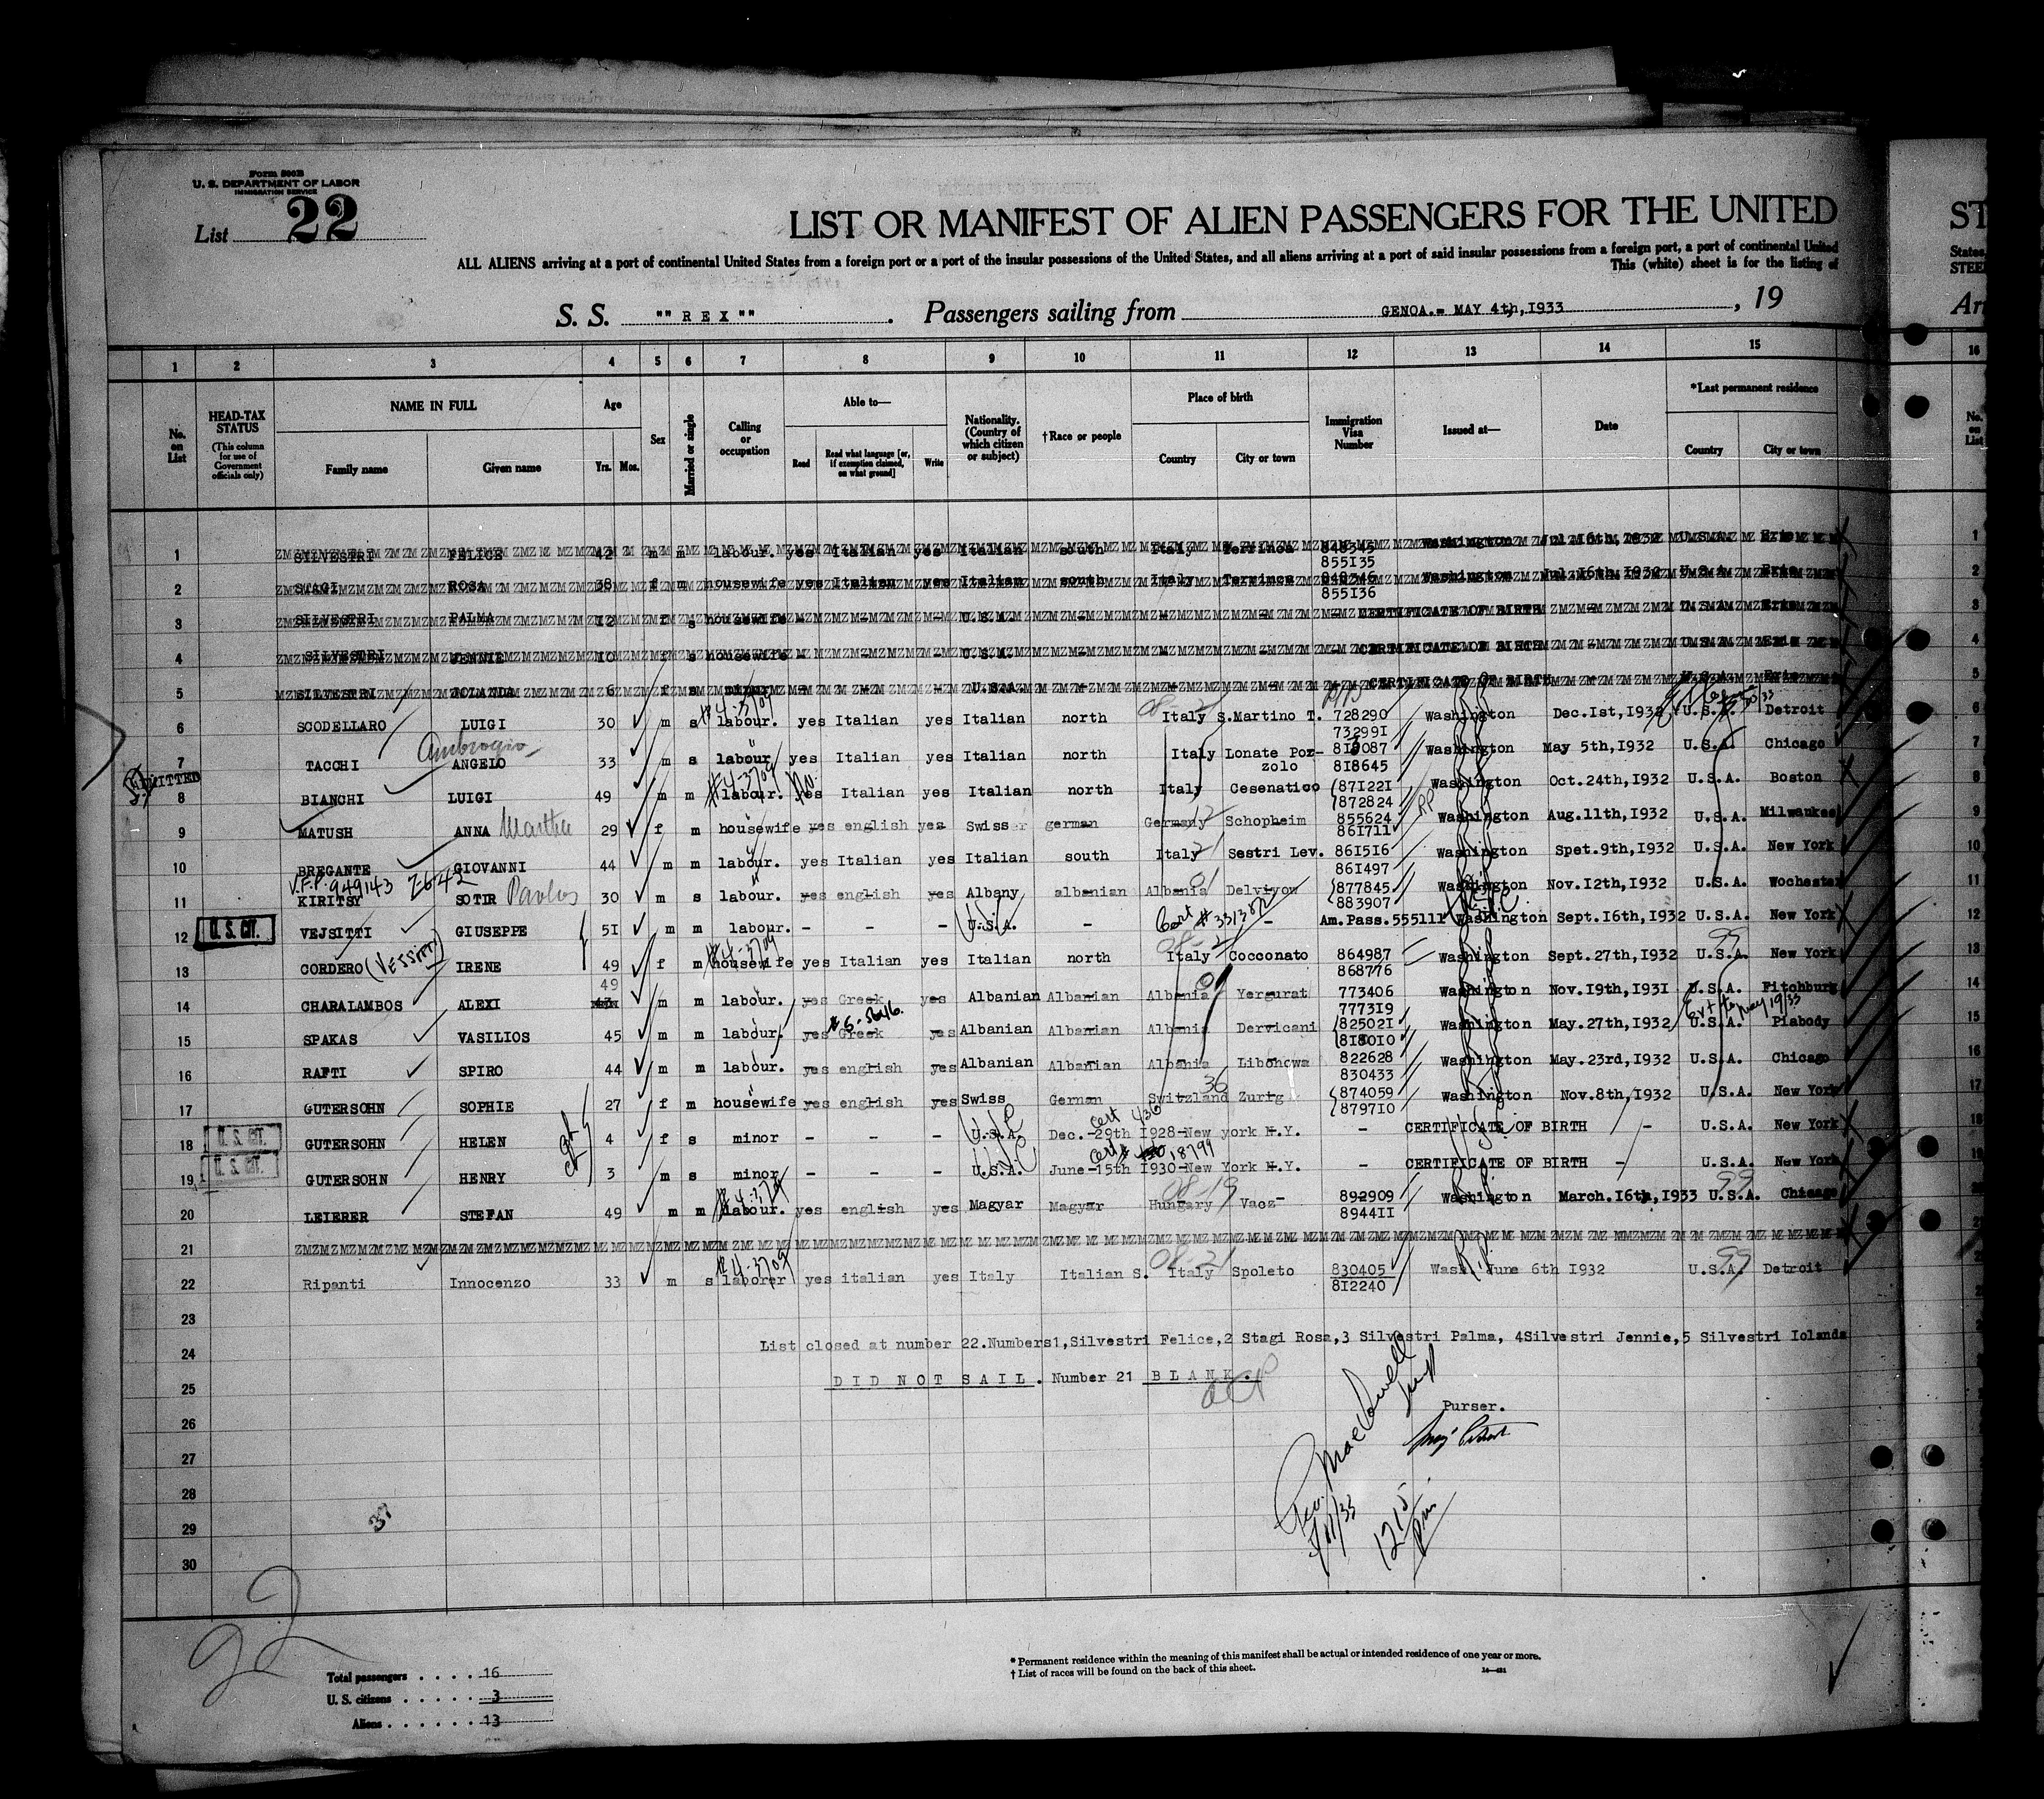 Form 500B
U. S. DEPARTMENT OF LABOR
IMMIGRATION SERVICE
List 22
LIST OR MANIFEST OF ALIEN PASSENGERS FOR THE UNITED
ST
ALL ALIENS arriving at a port of continental United States from a foreign port or a port of the insular possessions of the United States, and all aliens arriving at a port of said insular possessions from a foreign port, a port of continental United
States
This (white) sheet is for the listing of
STEE
S. S. "" R E X "" . Passengers sailing from GENOA.- MAY 4th,1933 , 19
Arr
1 2 3 4 5 6 7 8 9 10 11 12 13 14 15 16
No. on List
HEAD-TAX STATUS
(This column for use of Government officials only)
NAME IN FULL
Family name Given name
Age
Yrs. Mos.
Sex
Married or single
Calling or occupation
Able to—
Read Read what language [or, if exemption claimed, on what ground] Write
Nationality. (Country of which citizen or subject)
†Race or people
Place of birth
Country City or town
Immigration Visa Number
Issued at—
Date
*Last permanent residence
Country City or town
No. on List
1 SILVESTRI FELICE 42 m m labour. yes Italian yes Italian south Italy Terrinca 848345 Washington Jul.16th,1932 U.S.A. Erie
855135
2 STAGI ROSA 38 f m housewife yes Italian yes Italian south Italy Terrinca 848346 Washington Jul.16th,1932 U.S.A. Erie
855136
3 SILVESTRI PALMA 12 f s housewife - - - U.S.A. - - - CERTIFICATE OF BIRTH - U.S.A. Erie
4 SILVESTRI JENNIE 10 f s housewife - - - U.S.A. - - - CERTIFICATE OF BIRTH - U.S.A. Erie
5 SILVESTRI JOLANDA 6 f s minor - - - U.S.A. - - - CERTIFICATE OF BIRTH - U.S.A. Erie
6 SCODELLARO LUIGI 30 m s labour. yes Italian yes Italian north Italy S.Martino T. 728290 Washington Dec.1st,1932 U.S.A. Detroit
732991
Ambrogio
7 TACCHI ANGELO 33 m s labour yes Italian yes Italian north Italy Lonate Poz- 818087 Washington May 5th,1932 U.S.A. Chicago
zolo 818645
ADMITTED
8 BIANCHI LUIGI 49 m m labour. yes Italian yes Italian north Italy Cesenatico 871221 Washington Oct.24th,1932 U.S.A. Boston
872824
9 MATUSH ANNA Martha 29 f m housewife yes english yes Swiss german Germany Schopheim 855624 Washington Aug.11th,1932 U.S.A. Milwaukee
861711
10 BREGANTE GIOVANNI 44 m m labour. yes Italian yes Italian south Italy Sestri Lev. 861516 Washington Spet.9th,1932 U.S.A. New York
861497
V.F.P. 949143 2642
11 KIRITSY SOTIR Pavlos 30 m s labour. yes english yes Albany albanian Albania Delvivow 877845 Washington Nov.12th,1932 U.S.A. Wochester
883907
12 U. S. CIT. VEJSITTI GIUSEPPE 51 m m labour. - - - U.S.A. - Cert # 331382 - Am.Pass.555111 Washington Sept.16th,1932 U.S.A. New York
13 CORDERO (VESSITTI) IRENE 49 f m housewife yes Italian yes Italian north Italy Cocconato 864987 Washington Sept.27th,1932 U.S.A. New York
868776
49
14 CHARALAMBOS ALEXI m m labour. yes Greek yes Albanian Albanian Albania Yergurat 773406 Washington Nov.19th,1931 U.S.A. Fitchburg
777319
15 SPAKAS VASILIOS 45 m m labour. yes Greek yes Albanian Albanian Albania Dervicani 825021 Washington May.27th,1932 U.S.A. Piabody
818010
16 RAFTI SPIRO 44 m m labour. yes english yes Albanian Albanian Albania Libohowa 822628 Washington May.23rd,1932 U.S.A. Chicago
830433
17 GUTERSOHN SOPHIE 27 f m housewife yes english yes Swiss German Switzland Zurig 874059 Washington Nov.8th,1932 U.S.A. New York
879710
18 U. S. CIT. GUTERSOHN HELEN 4 f s minor - - - U.S.A. Dec.-29th 1928-New york N.Y. - CERTIFICATE OF BIRTH - U.S.A. New York
19 U. S. CIT. GUTERSOHN HENRY 3 m s minor - - - U.S.A. June-15th 1930-New York N.Y. - CERTIFICATE OF BIRTH - U.S.A. New York
20 LEIERER STEFAN 49 m m labour. yes english yes Magyar Magyar Hungary Vacz 892909 Washington March.16th,1933 U.S.A. Chicago
894411
21
22 Ripanti Innocenzo 33 m s laborer yes italian yes Italy Italian S. Italy Spoleto 830405 Wash. June 6th 1932 U.S.A. Detroit
812240
23
24 List closed at number 22.Numbers1,Silvestri Felice,2 Stagi Rosa,3 Silvestri Palma, 4Silvestri Jennie,5 Silvestri Iolanda
25 DID NOT SAIL. Number 21 BLANK.
Purser.
26
27
28
29
30
1215 pm
* Permanent residence within the meaning of this manifest shall be actual or intended residence of one year or more.
† List of races will be found on the back of this sheet.
Total passengers . . . . 16
U. S. citizens . . . . . 3
Aliens . . . . . . 13
22